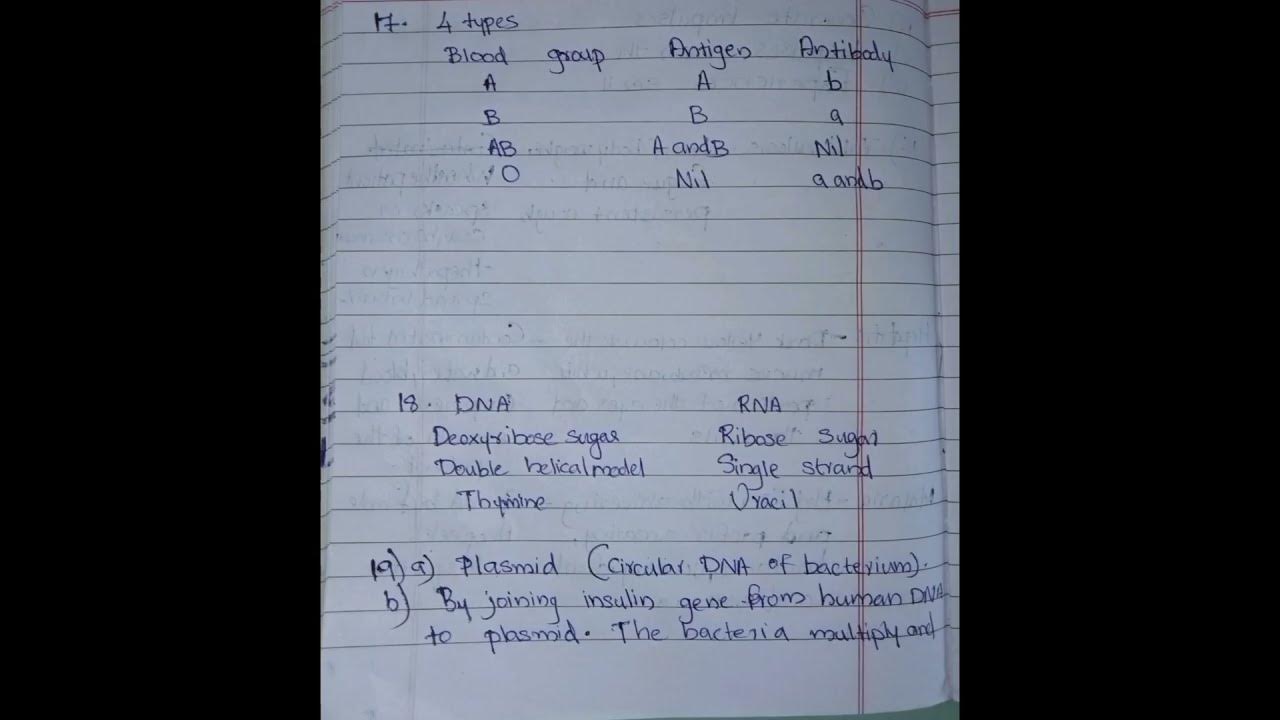 17. 4 types
Blood group Antigen Antibody
A A b
B B a
AB A and B Nil
O Nil a and b
18. DNA RNA
Deoxyribose sugar Ribose sugar
Double helical model Single strand
Thymine Uracil
19) a) Plasmid (Circular DNA of bacterium).
b) By joining insulin gene from human DNA
to plasmid. The bacteria multiply and